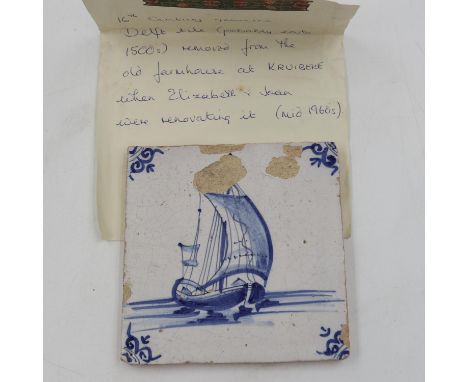 16th Century genuine
Delft tile (probably early
1500s) removed from the
old farmhouse at KRUIBEKE
when Elizabeth & Juan
were renovating it (mid 1960s)